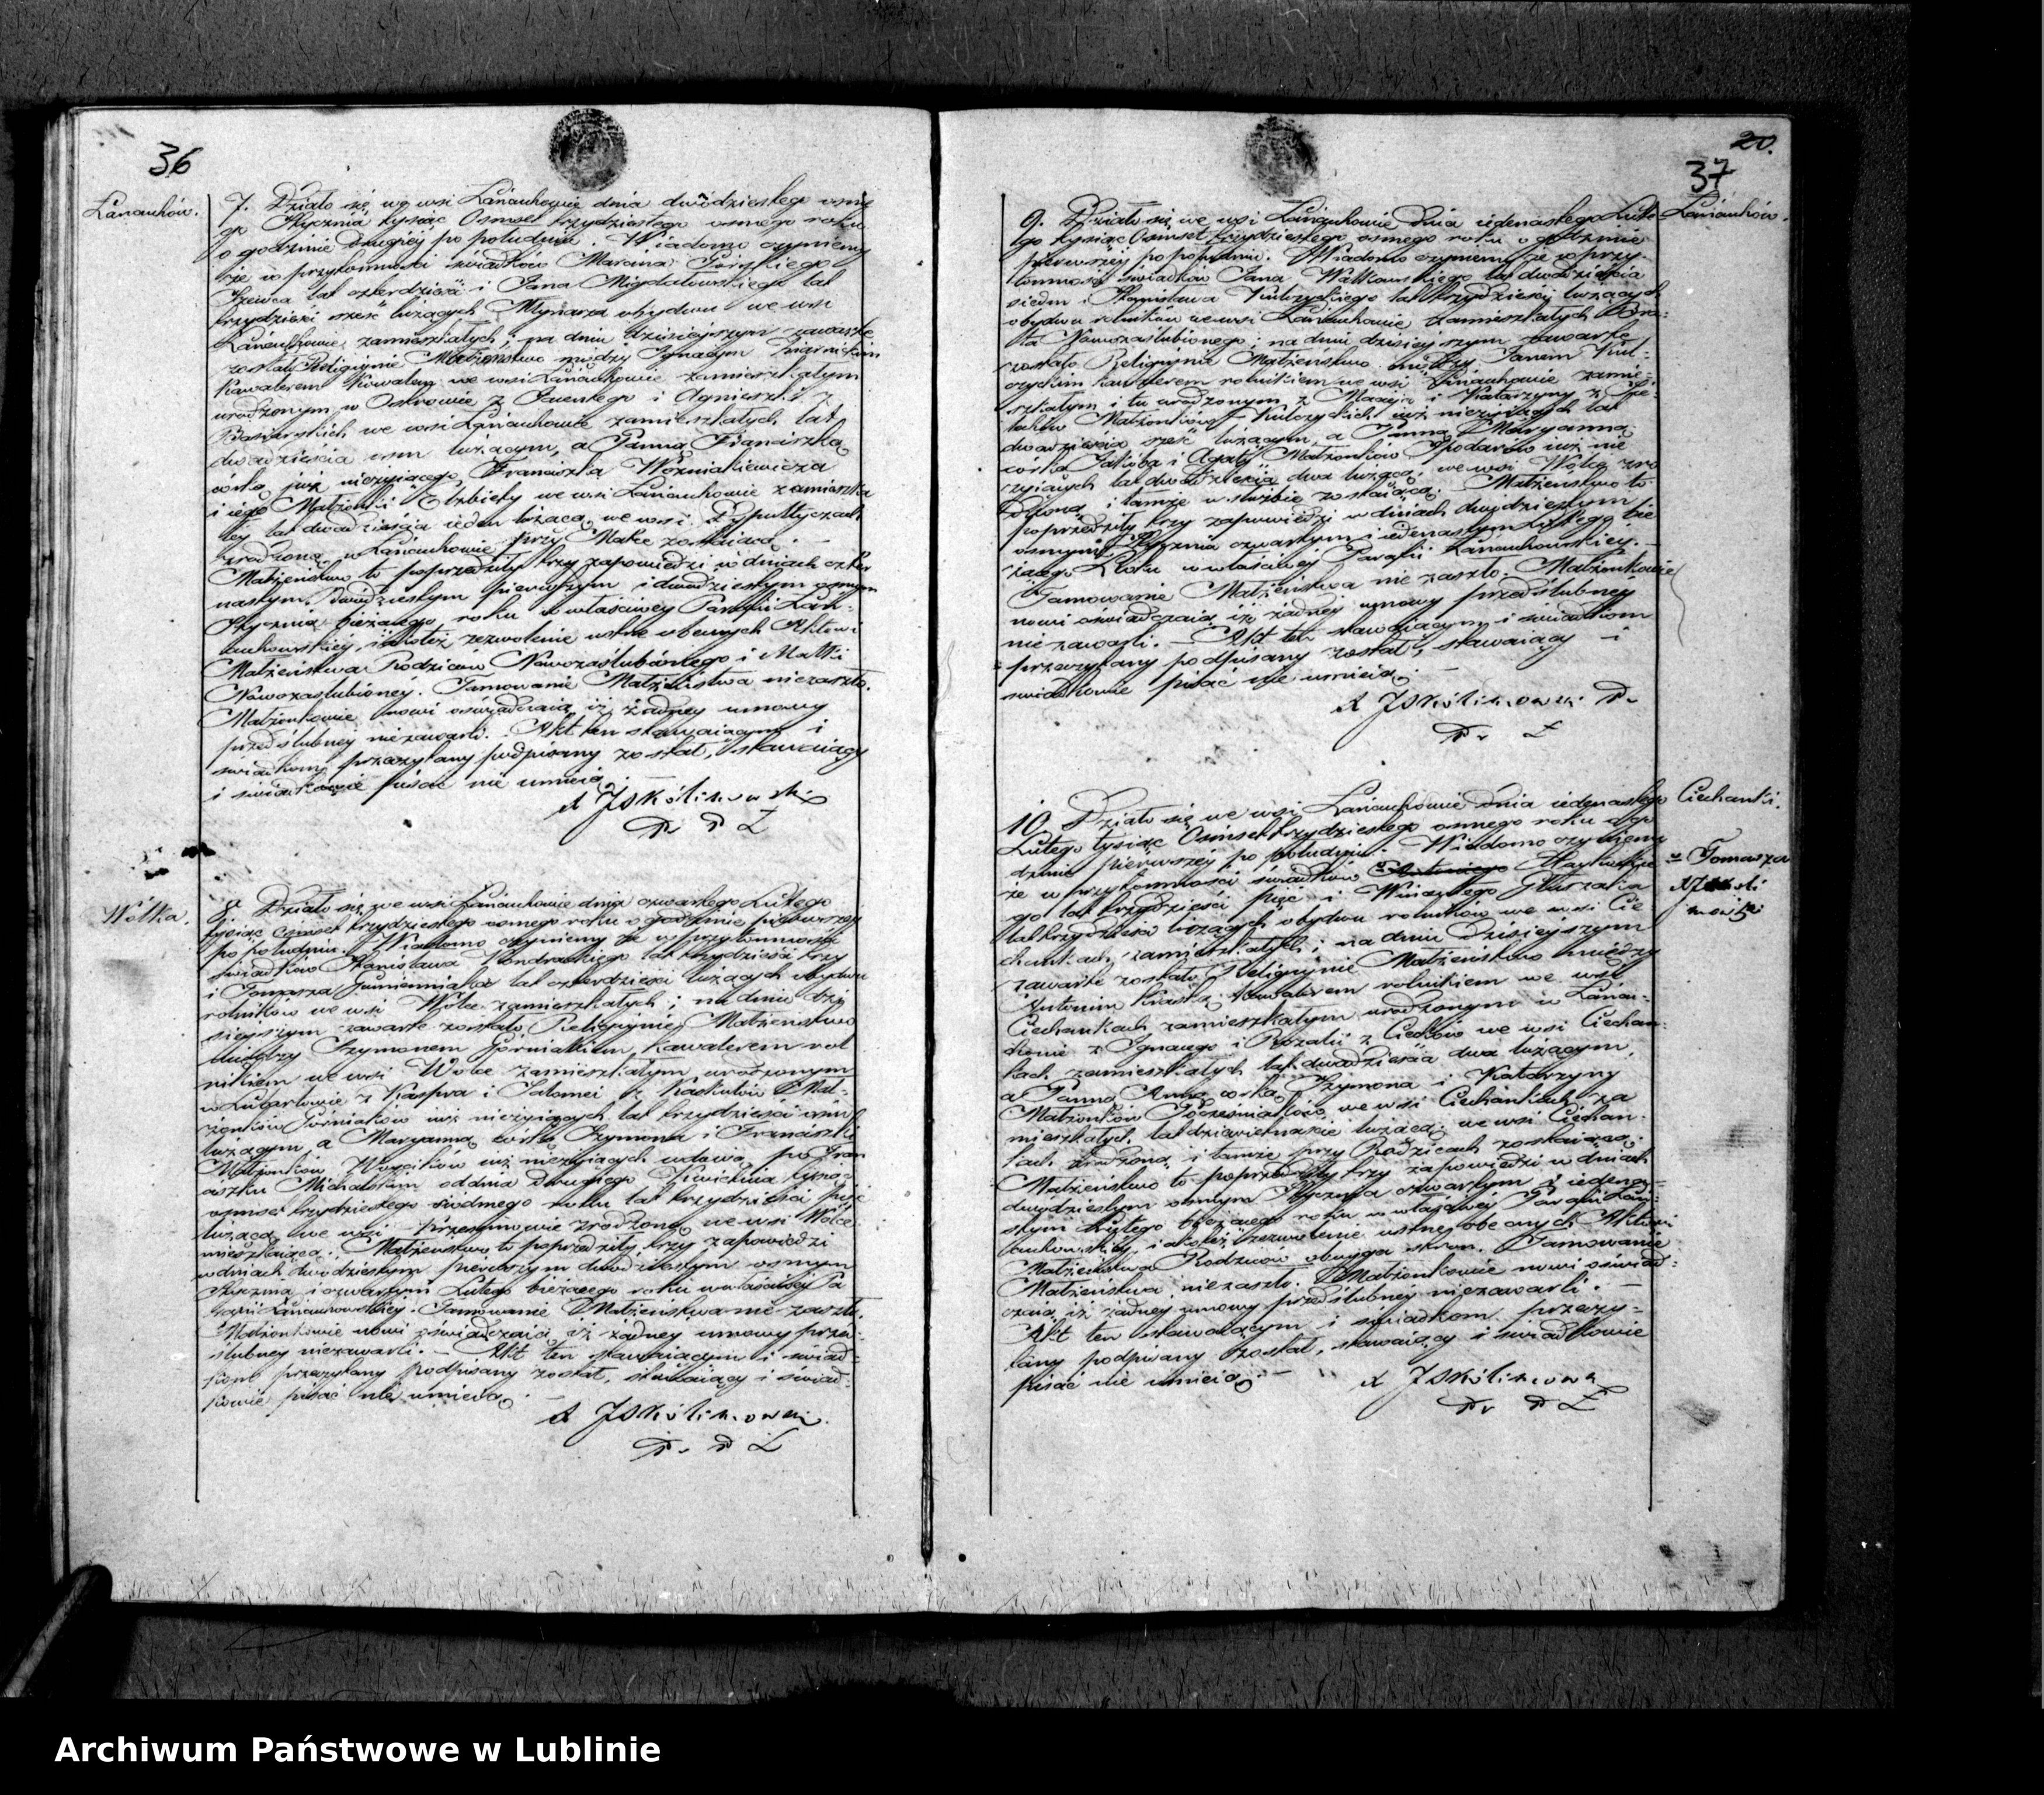 36
Łańcuchów.
7. Działo się we wsi Łańcuchowie dnia dwódziestego osme
go Stycznia tysiąc Osmset trzydziestego osmego roku
o godzinie Drugiéy po południu. Wiadomo czyniemy
że w przytomności świadków Marcina
Szewca lat czterdzieści i Jana Migdałowskiego lat
trzydzieści sześć liczących Młynarza obydwu we wsi
Łańcuchowie zamieszkałych; na dniu dzisieyszym zawarte
zostało Religiynie Małżeństwo między Ignacym
Kawalerem Kowalem we wsi Łańcuchowie zamieszkałym
urodzonym w Ostrowie z Wincentego i Agnieszki
we wsi Łańcuchowie zamieszkałych lat
dwadzieścia osm liczącym, a Panną Franciszką
córką już nieżyiącego Franciszka Woźniakiewicza
i iego Małżonki Elżbiety we wsi Łańcuchowie zamieszka
łéy lat dwadzieścia ieden liczącą we wsi
zrodzoną w Łańcuchowie przy Matce zostaiącą. —
Małżeństwo to poprzedziły trzy zapowiedzi w dniach czter
nastym, Dwódziestym pierwszym i dwódziestym osmym
Stycznia bieżącego roku w właściwey Parafii Łań-
cuchowskiéy, iakoteż zezwolenie ustne obecnych Aktowi
Małżeństwa Rodziców Nowozaślubionego i Matki
Nowozaślubionéy. Tamowanie Małżeństwa niezaszło.
Małżonkowie nowi oświadczaią, iż żadney umowy
przedślubnéy niezawarli. Akt ten stawaiącym i
świadkom przeczytany podpisany został, stawaiący
i świadkowie pisać nie umieią.
A Jskólikowski
P. P Ł
Wólka.
8. Działo się we wsi Łańcuchowie dnia czwartego Lutego
tysiąc Osmset trzydziestego osmego roku o godzinie pierwszéy
po południu. Wiadomo czyniemy że w przytomności
świadków Stanisława Kondrackiego lat trzydzieści trzy
i Tomasza lat czterdzieści liczących obydwu
rolników we wsi Wólce zamieszkałych; na dniu dzi
sieyszym zawarte zostało Religiynie Małżeństwo
między Szymonem Górniakiem, Kawalerem rol
nikiem we wsi Wólce zamieszkałym urodzonym
w Lubartowie z Kaspra i Salomei z Mał-
żonków Górniaków iuż nieżyiących lat trzydzieści osm
liczącym, a Maryanną córką Szymona i Franciszki
Małżonków Woycików iuż nieżyiących wdową po Fran
ciszku Michalskim od dnia Drugiego Kwietnia tysiąc
osmset trzydziestego siódmego roku lat trzydzieści pięć
liczącą we wsi zrodzoną we wsi Wólce
mieszkaiącą. Małżeństwo to poprzedziły trzy zapowiedzi
w dniach dwódziestym pierwszym dwódziestym osmym
Stycznia i czwartym Lutego bieżącego roku w właściwéy Pa
rafii Łańcuchowskiéy. Tamowanie Małżeństwa nie zaszło.
Małżonkowie nowi oświadczaią iż żadney umowy przed-
ślubney niezawarli. — Akt ten stawaiącym i świad-
kom przeczytany Podpisany został, stawaiący i świad-
kowie pisać nie umieią. —
A Jskólikowski.
P. P Ł
20.
37
Łańcuchów.
9. Działo się we wsi Łańcuchowie Dnia iedenastego Lute-
go tysiąc Osmset trzydziestego osmego roku o godzinie
pierwszéy po południu. Wiadomo czyniemy, że w przy-
tomności świadków Jana Wałkowskiego lat dwadzieścia
siedm i Stanisława Kulczyckiego lat trzydzieści liczących
obydwu rolników we wsi Łańcuchowie zamieszkałych Bra-
ta Nowozaślubionego; na dniu dzisieyszym zawarte
zostało Religiynie Małżeństwo między Janem Kul-
czyckim kawalerem rolnikiem we wsi Łańcuchowie zamie-
szkałym i tu urodzonym z Macieja i Katarzyny z
Małżonków Kulczyckich iuż nieżyiących lat
dwadzieścia sześć liczącym, a Panną Maryanną
córką Jakóba i Agaty Małżonków Spodarów iuż nie
żyiących lat dwadzieścia dwa liczącą, we wsi Wólce zro
dzoną i tamże w służbie zostaiącą. Małżeństwo to
poprzedziły trzy zapowiedzi w dniach dwódziestym
osmym Stycznia czwartym i iedenastym Lutego bie
żącego Roku w właściwéy Parafii Łańcuchowskiey.
Tamowanie Małżeństwa nie zaszło. Małżonkowie
nowi oświadczaią iż żadnéy umowy przedślubnéy
nie zawarli. — Akt ten stawaiącym i świadkom
przeczytany podpisany został, stawaiący i
świadkowie pisać nie umieią. —
A Jskólikowski P.
P. Ł
Ciechanki.
10. Działo się we wsi Łańcuchowie Dnia iedenastego
Lutego tysiąc Osmset trzydziestego osmego roku o go
dzinie pierwszéy po południu. Wiadomo czyniemy
że w przytomności świadków
go lat trzydzieści pięć i Wincentego
lat trzydzieści liczących obydwu rolników we wsi Cie
chankach zamieszkałych; na dniu Dzisieyszym
zawarte zostało Religiynie Małżeństwo między
Antonim Kawalerem rolnikiem we wsi
Ciechankach zamieszkałym urodzonym w Łańcu-
chowie z Ignacego i Rozalii z Ciechów we wsi Ciechan-
kach zamieszkałych lat dwadzieścia dwa liczącym,
a Panną Anną córką Szymona i Katarzyny
Małżonków we wsi Ciechankach za
mieszkałych, lat dziewiętnaście liczącą we wsi Ciechan-
kach zrodzoną i tamże przy Rodzicach zostaiącą.
Małżeństwo to poprzedziły trzy zapowiedzi w dniach
dwódziestym osmym Stycznia czwartym i iedena-
stym Lutego bieżącego roku w właściwéy Parafii Łań-
cuchowskiéy, iakoteż zezwolenie ustne obecnych Aktowi
Małżeństwa Rodziców obojga stron. Tamowanie
Małżeństwa niezaszło. Małżonkowie nowi oświad-
czaią iż żadney umowy przedślubney niezawarli. —
Akt ten stawaiącym i świadkom przeczy-
tany podpisany został, stawaiący i świadkowie
pisać nie umieią. —
A Jskólikowski
P. P Ł
Tomasza
Archiwum Państwowe w Lublinie